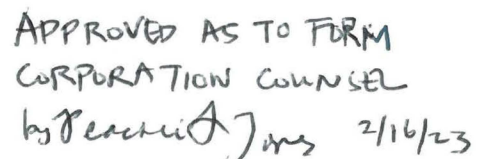 APPROVED AS TO FORM
CORPORATION COUNSEL
by Jones 2/16/23